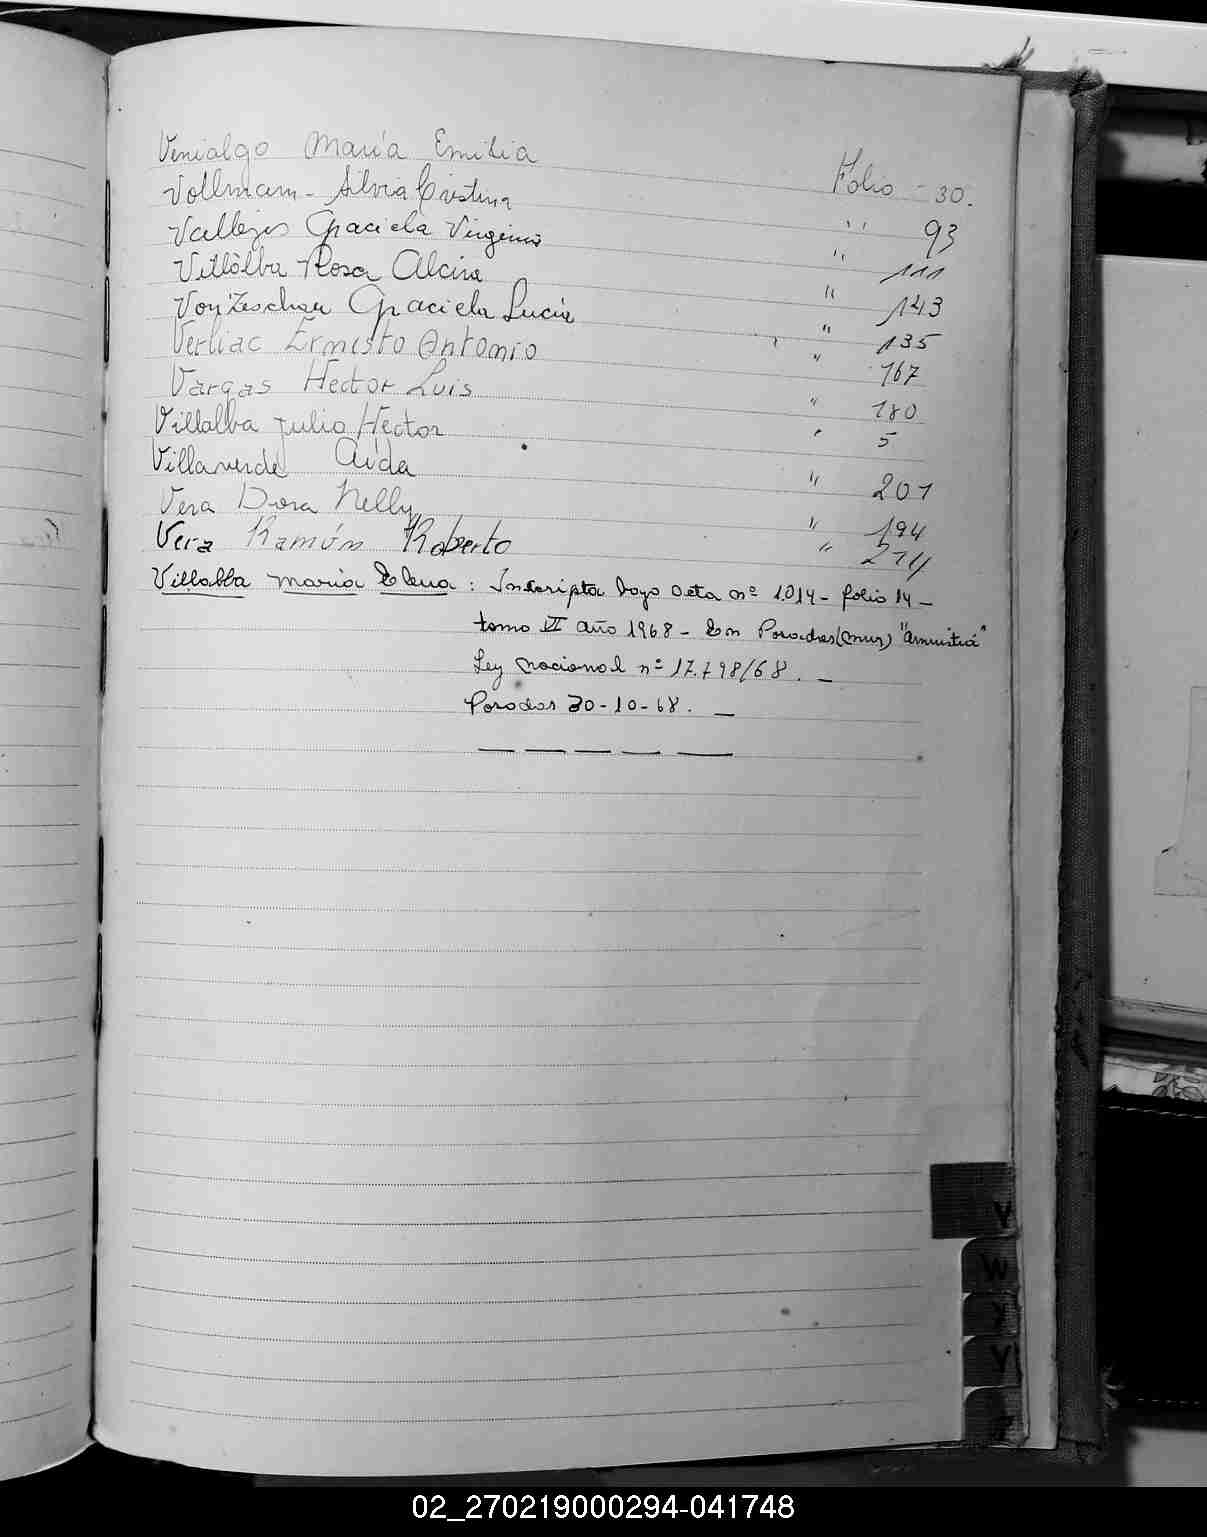 Venialgo María Emilia Folio - 30.
Vollmam - Silvia Cristina " 93
Vallejos Graciela Virginia " 111
Villalba Rosa Alcira " 143
Von Zeschau Graciela Lucía " 135
Verliac Ernesto Antonio " 167
Vargas Hector Luis " 180
Villalba Julio Hector " 5
Villaverde Aida " 201
Vera Dora Nelly " 194
Vera Ramón Roberto " 214
Villalba María Elena : Inscripta bajo acta nº 1.014 - folio 14 -
tomo VI año 1968 - En Posadas (Mnes) "amnistia"
Ley nacional nº 17.798/68. -
Posadas 30-10-68. -
V
W
Y
02_270219000294-041748